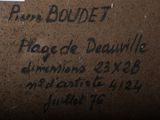 Pierre BOUDET
Plage de Deauville
dimensions 23X28
n° d'artiste 4124
Juillet 76